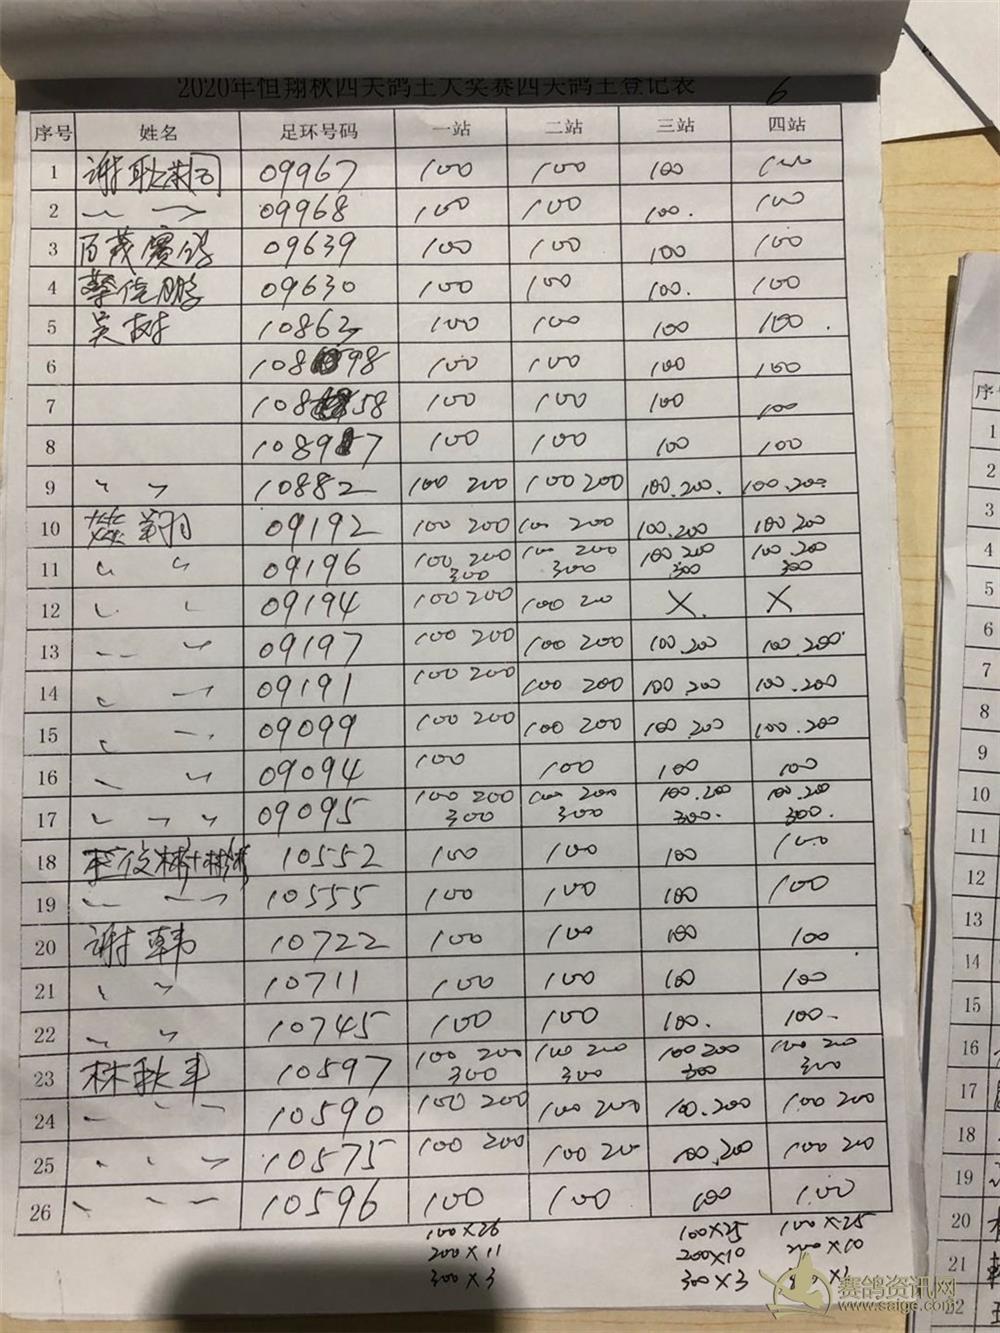 2020年恒翔秋四关鸽王大奖赛四关鸽王登记表 6
序号 姓名 足环号码 一站 二站 三站 四站
1 谢耿 09967 100 100 100 100
2 〃 〃 09968 100 100 100. 100
3 百茂赛鸽 09639 100 100 100 100
4 蔡 鹏 09630 100 100 100. 100
5 吴树 10863 100 100 100 100.
6 108 98 100 100 100 100
7 108 58 100 100 100 100
8 108917 100 100 100 100
9 〃 〃 10882 100 200 100 200 100.200. 100.200
10 翔 09192 100 200 100 200 100.200 100 200
11 〃 〃 09196 100 200 300 100 200 300 100 200 300 100.200 300
12 〃 〃 09194 100 200 100 200 X. X
13 〃 〃 09197 100 200 100 200 100.200 100.200
14 〃 〃 09191 100 200 100 200 100.200 100.200
15 〃 〃 09099 100 200 100 200 100.200 100.200
16 〃 〃 09094 100 100 100 100
17 〃 〃 〃 09095 100 200 300 100 200 300 100.200 300. 100.200 300.
18 李 林+ 10552 100 100 100 100
19 〃 〃 〃 10555 100 100 100 100
20 谢韩 10722 100 100 100 100
21 〃 〃 10711 100 100 100 100
22 〃 〃 10745 100 100 100. 100.
23 林秋丰 10597 100 200 300 100 200 300 100 200 300 100 200 300
24 〃 〃 〃 10590 100 200 100 200 100.200 100 200
25 〃 〃 〃 10575 100 200 100 200 100.200 100 200
26 〃 〃 〃 10596 100 100 100 100
100×26 100×25 100×25
200×11 200×10 200×10
300×3 300×3
序
1
2
3
4
5
6
7
8
9
10
11
12
13
14
15
16
17
18
19
20
21
22
赛鸽资讯网
www.saige.com